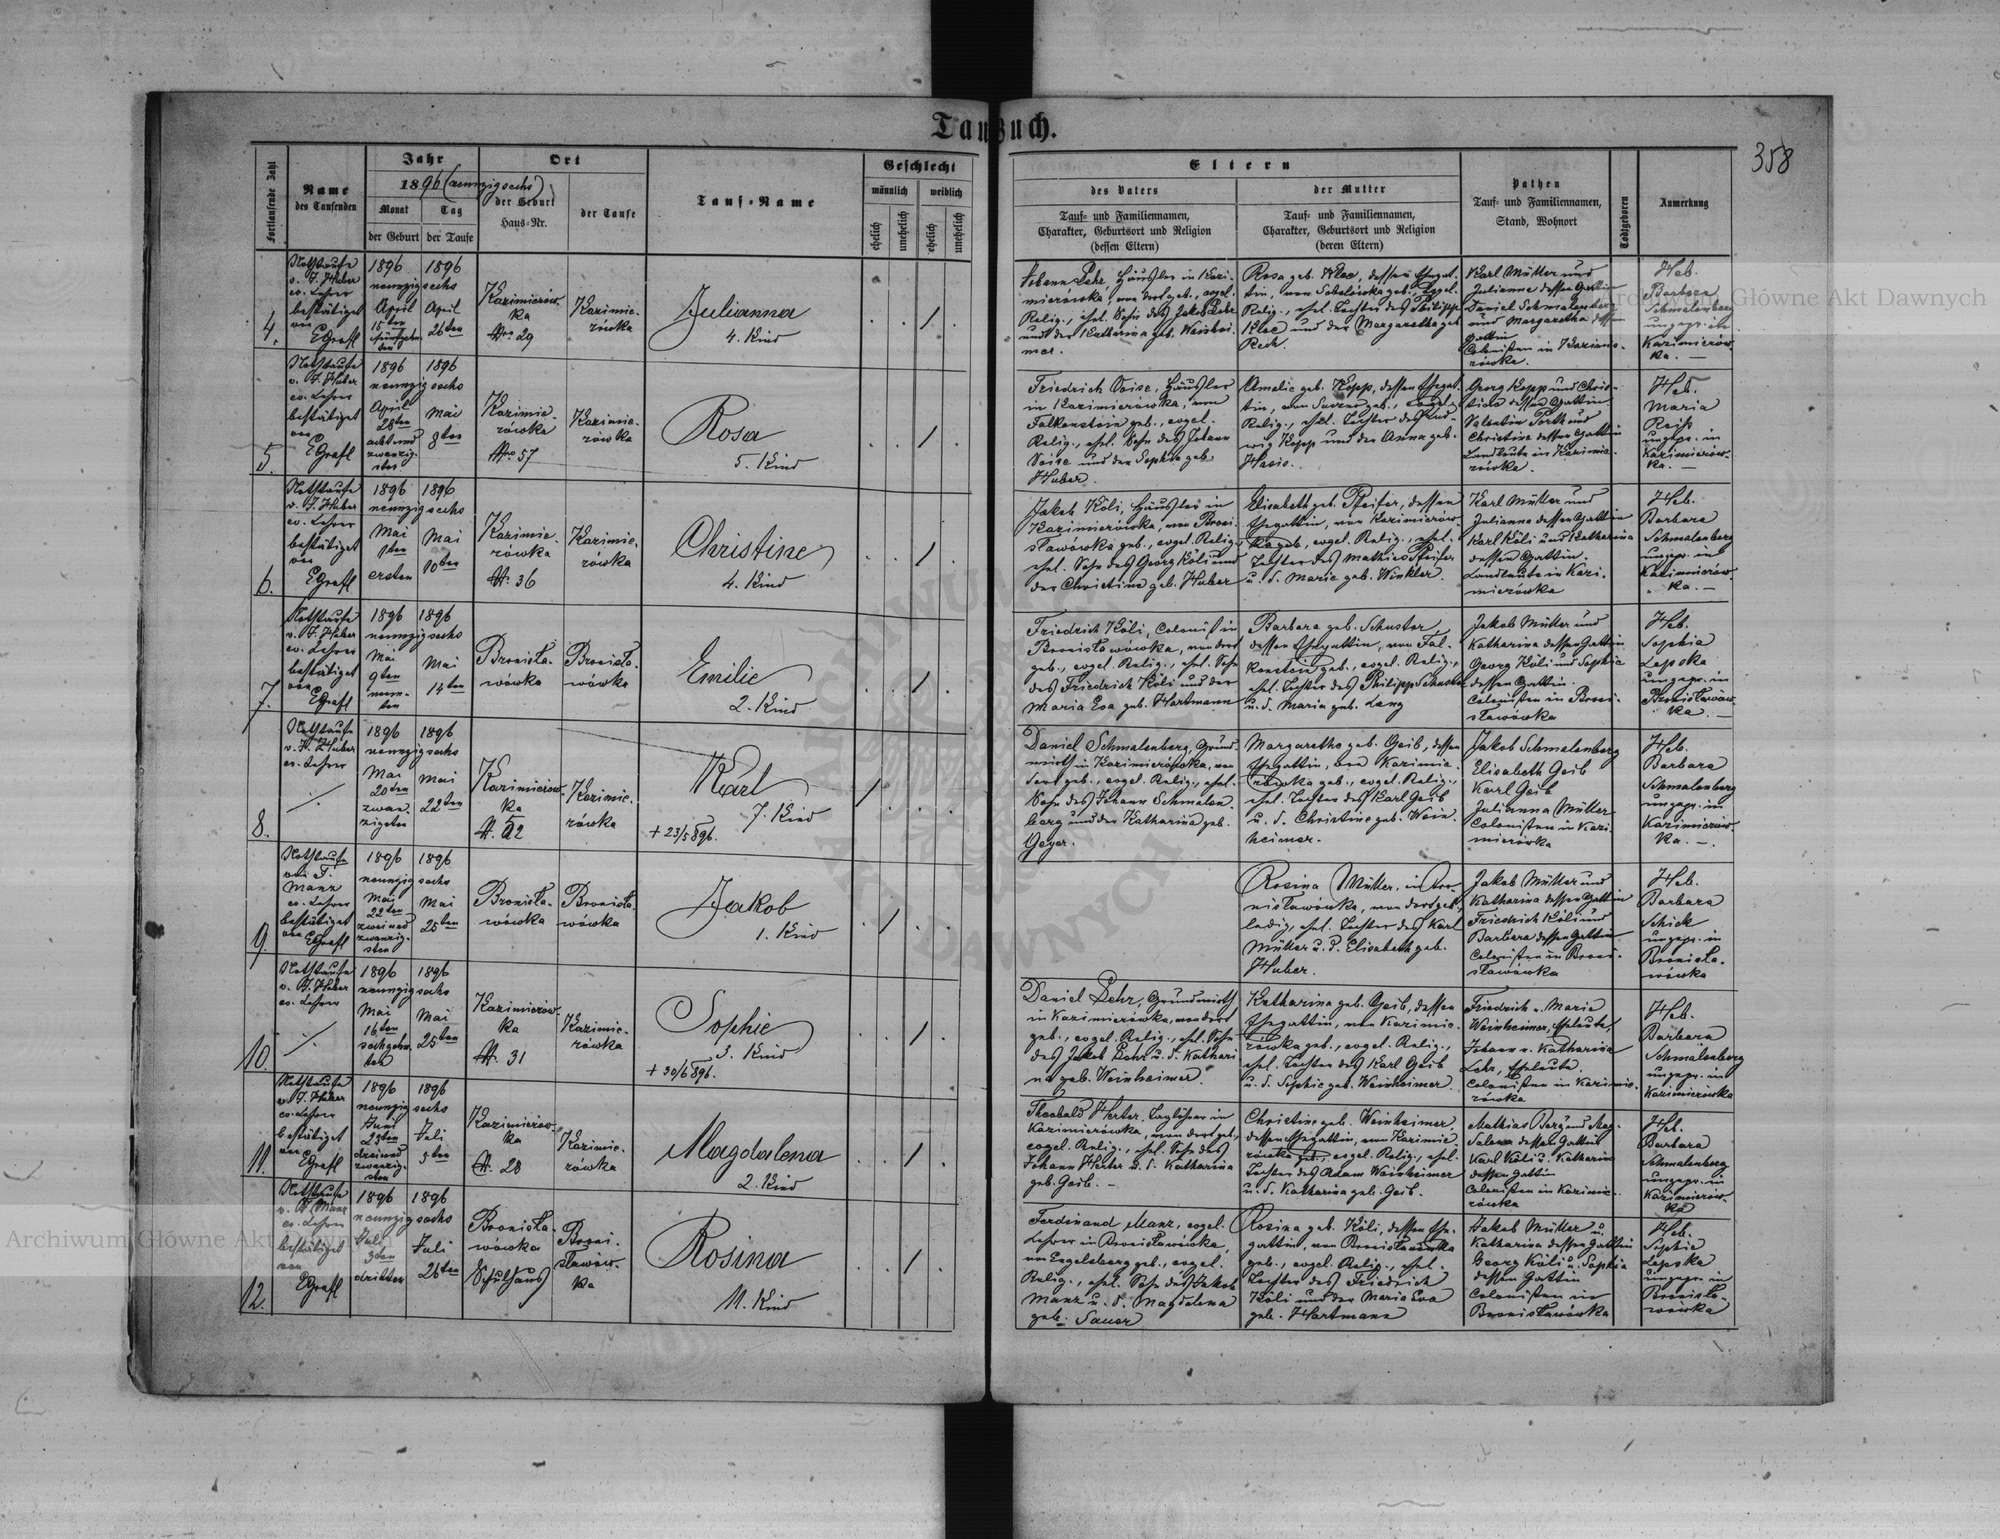 Taufbuch.
358
Fortlaufende Zahl
Name
des Taufenden
Jahr
1896 (neunzigsechs)
Monat
der Geburt
Tag
der Taufe
Ort
der Geburt
Haus-Nr.
der Taufe
Tauf-Name
Geschlecht
männlich
weiblich
ehelich
unehelich
ehelich
unehelich
Eltern
des Vaters
Tauf- und Familiennamen,
Charakter, Geburtsort und Religion
(dessen Eltern)
der Mutter
Tauf- und Familiennamen,
Charakter, Geburtsort und Religion
(deren Eltern)
Pathen
Tauf- und Familiennamen,
Stand, Wohnort
Todtgeboren
Anmerkung
4.
Nothtaufe
v. J. Huber
ev. Lehrer
bestätiget
von
EGrafl
1896 1896
neunzigsechs
April
15ten
fünfzehn
ten
April
26ten
Kazimierów
ka
Nro 29
Kazimie-
rówka
Julianna
4. Kind
Johann Lehr, Häusler in Kazi-
mierówka, von dort geb., evgel.
Relig., ehel. Sohn des Jakob Lehr
und der Katharina geb. Weinhei-
mer.
Rosa geb. Klee, dessen Ehegat-
tin, von Sokolówka geb., evgel.
Relig., ehel. Tochter des Philipp
Klee und der Margaretha geb.
Rech.
Karl Müller und
Julianne dessen Gattin
Daniel Schmalenberg
und Margaretha dessen
Gattin
Colonisten in Kazimie-
rówka.
Heb.
Barbara
Schmalenberg
ungepr. in
Kazimierów-
ka. —
5.
Nothtaufe
v. J. Huber
ev. Lehrer
bestätiget
von
EGrafl
1896 1896
neunzigsechs
April
28ten
acht und
zwanzig-
sten
Mai
8ten
Kazimie-
rówka
Nro 57
Kazimie-
rówka
Rosa
5. Kind
Friedrich Weise, Häusler
in Kazimierówka, von
Falkenstein geb., evgel.
Relig., ehel. Sohn des Johann
Weise und der Sophie geb.
Huber.
Amalie geb. Kopp, dessen Ehegat-
tin, von geb., evgel.
Relig., ehel. Tochter des Lud-
wig Kopp und der Anna geb.
Georg Kopp und Chris-
tine dessen Gattin
Valentin Porth und
Christine dessen Gattin
Landleute in Kazimie-
rówka.
Heb.
Maria
Reiß
ungepr. in
Kazimierów-
ka. —
6.
Nothtaufe
v. J. Huber
ev. Lehrer
bestätiget
von
EGrafl
1896 1896
neunzigsechs
Mai
1ten
ersten
Mai
10ten
Kazimie-
rówka
N. 36
Kazimie-
rówka
Christine
4. Kind
Jakob Köli, Häusler in
Kazimierówka, von Broni-
sławówka geb., evgel. Relig.,
ehel. Sohn des Georg Köli und
der Christine geb. Huber
Elisabeth geb. Pfeifer, dessen
Ehegattin, von Kazimierów-
ka geb., evgel. Relig., ehel.
Tochter des Mathias Pfeifer
u. d. Marie geb. Winkler.
Karl Müller und
Julianna dessen Gattin
Karl Köli und Katharina
dessen Gattin.
Landleute in Kazi-
mierówka
Heb.
Barbara
Schmalenberg
ungepr. in
Kazimierów-
ka. —
7.
Nothtaufe
v. J. Huber
ev. Lehrer
bestätiget
von
EGrafl
1896 1896
neunzigsechs
Mai
9ten
neun-
ten
Mai
14ten
Bronisła-
wówka
Bronisła-
wówka
Emilie
2. Kind
Friedrich Köli, Colonist in
Bronisławówka, von dort
geb., evgel. Relig., ehel. Sohn
des Friedrich Köli und der
Maria Eva geb. Hartmann
Barbara geb. Schuster
dessen Ehegattin, von Fal-
kenstein geb., evgel. Relig.,
ehel. Tochter des Philipp Schuster
u. d. Maria geb. Lang
Jakob Müller und
Katharina dessen Gattin
Georg Köli und Sophie
dessen Gattin.
Colonisten in Broni-
sławówka
Heb.
Sophia
Lepska
ungepr. in
Bronisławów-
ka. —
8.
Nothtaufe
v. J. Huber
ev. Lehrer
1896 1896
neunzigsechs
Mai
20ten
zwan-
zigsten
Mai
22ten
Kazimierów-
ka
N. 52
Kazimie-
rówka
Karl
7. Kind
+ 23/5 896.
Daniel Schmalenberg, Grund-
wirth in Kazimierówka, von
dort geb., evgel. Relig., ehel.
Sohn des Johann Schmalen-
berg und der Katharina geb.
Geyer.
Margaretha geb. Geib, dessen
Ehegattin, von Kazimie-
rówka geb., evgel. Relig.,
ehel. Tochter des Karl Geib
u. d. Christine geb. Wein-
heimer.
Jakob Schmalenberg
Elisabeth Geib
Karl Geib
Julianna Müller
Colonisten in Kazi-
mierówka
Heb.
Barbara
Schmalenberg
ungepr. in
Kazimierów-
ka. —.
9.
Nothtaufe
von F.
Manz
ev. Lehrer
bestätiget
von EGrafl
1896 1896
neunzigsechs
Mai
22ten
zwei und
zwanzig-
sten
Mai
25ten
Bronisła-
wówka
Bronisła-
wówka
Jakob
1. Kind
Rosina Müller, in Bro-
nisławówka, von dort geb.,
ledig, ehel. Tochter des Karl
Müller u. d. Elisabeth geb.
Huber.
Jakob Müller und
Katharina dessen Gattin
Friedrich Köli und
Barbara dessen Gattin
Colonisten in Broni-
sławówka
Heb.
Barbara
Schick
ungepr. in
Bronisła-
wówka
10.
Nothtaufe
v. J. Huber
ev. Lehrer
1896 1896
neunzigsechs
Mai
16ten
sechzehn-
ten
Mai
25ten
Kazimierów-
ka
N. 31
Kazimie-
rówka
Sophie
3. Kind
+ 30/6 896.
Daniel Lehr, Grundwirth
in Kazimierówka, von dort
geb., evgel. Relig., ehel. Sohn
des Jakob Lehr u. d. Kathari-
na geb. Weinheimer.
Katharina geb. Geib, dessen
Ehegattin, von Kazimie-
rówka geb., evgel. Relig.,
ehel. Tochter des Karl Geib
u. d. Sophie geb. Weinheimer.
Friedrich u. Marie
Weinheimer, Eheleute,
Johann u. Katharina
Lehr, Eheleute.
Colonisten in Kazimie-
rówka
Heb.
Barbara
Schmalenberg
ungepr. in
Kazimierówka
11.
Nothtaufe
v. J. Huber
ev. Lehrer
bestätiget
von
EGrafl
1896 1896
neunzigsechs
Juni
23ten
drei und
zwanzig-
sten
Juli
5ten
Kazimierów-
ka
N. 28
Kazimie-
rówka
Magdalena
2. Kind
Theobald Herter, Taglöhner in
Kazimierówka, von dort geb.,
evgel. Relig., ehel. Sohn des
Johann Herter u. d. Katharina
geb. Geib. —
Christine geb. Weinheimer,
dessen Ehegattin, von Kazimie-
rówka geb., evgel. Relig., ehel.
Tochter des Adam Weinheimer
u. d. Katharina geb. Geib.
Mathias Berg und Mag-
dalena dessen Gattin
Karl Köli u. Katharina
dessen Gattin
Colonisten in Kazimie-
rówka
Heb.
Barbara
Schmalenberg
ungepr. in
Kazimierów-
ka
12.
Nothtaufe
v. F. Manz
ev. Lehrer
bestätiget
von
EGrafl
1896 1896
neunzigsechs
Juli
3ten
dritten
Juli
26ten
Bronisła-
wówka
Schulhaus
Broni-
sławów-
ka
Rosina
11. Kind
Ferdinand Manz, evgel.
Lehrer in Bronisławówka,
von Engelsberg geb., evgel.
Relig., ehel. Sohn des Jakob
Manz u. d. Magdalena
geb. Sauer
Rosina geb. Köli, dessen Ehe-
gattin, von Bronisławówka
geb., evgel. Relig., ehel.
Tochter des Friedrich
Köli und der Maria Eva
geb. Hartmann
Jakob Müller u.
Katharina dessen Gattin
Georg Köli u. Sophia
dessen Gattin
Colonisten in
Bronisławówka
Heb.
Sophie
Lepska
ungepr. in
Bronisła-
wówka
Archiwum Główne Akt Dawnych
Archiwum Główne Akt Dawnych